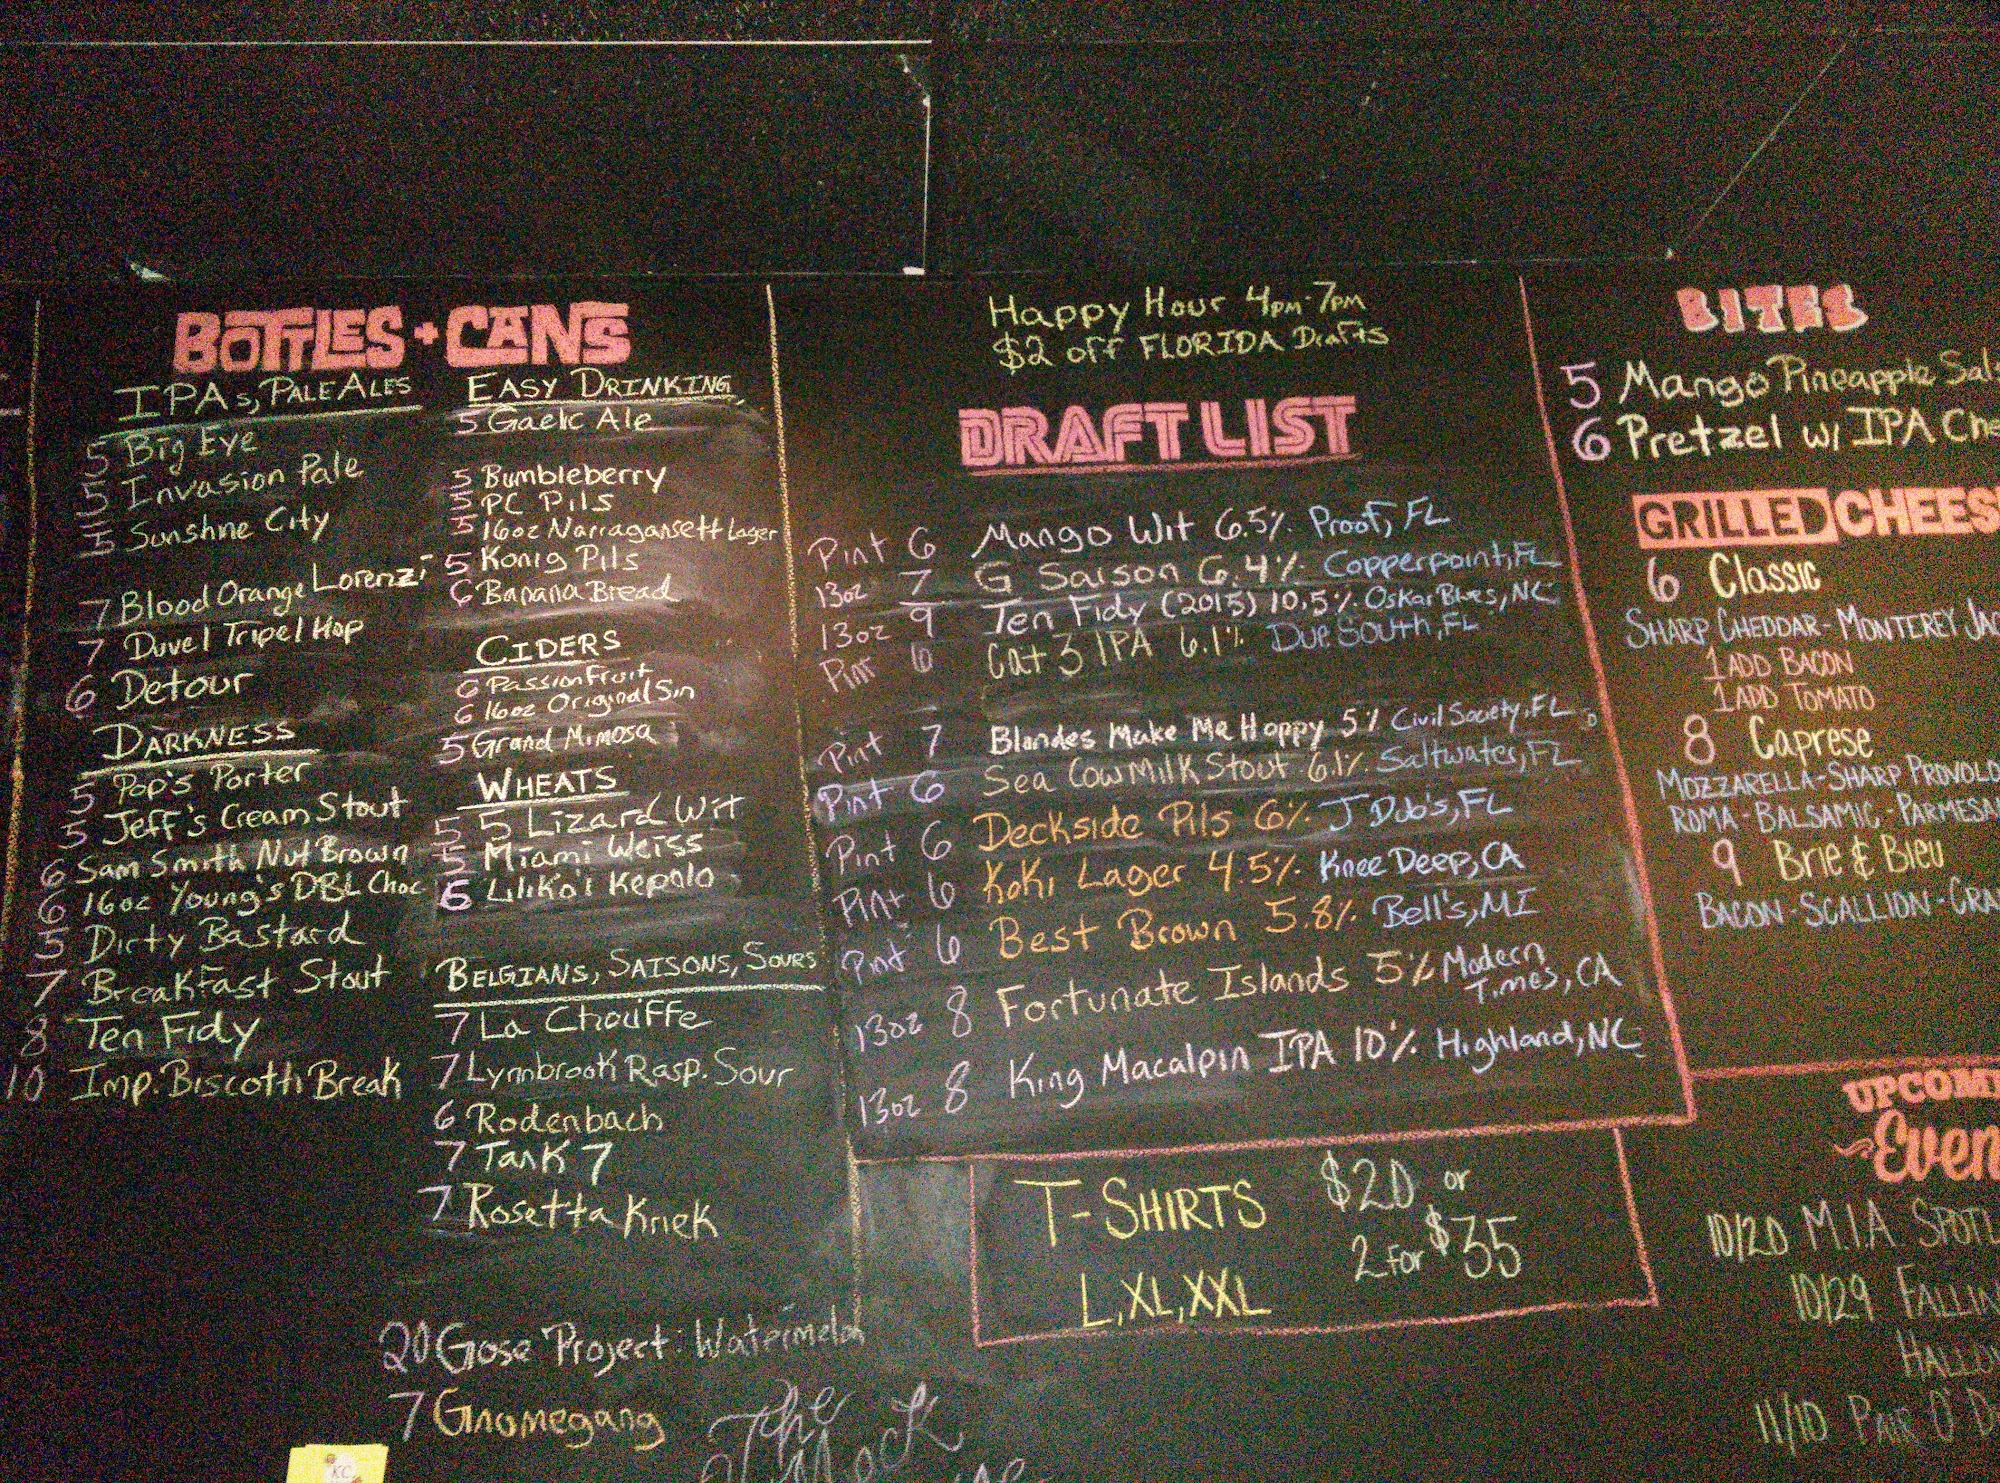 BOTTLES + CANS
IPAs, PALE ALES
5 Big Eye
5 Invasion Pale
5 Sunshne City
7 Blood Orange Lorenzi
7 Duvel Tripel Hop
6 Detour
DARKNESS
5 Pop's Porter
5 Jeff's Cream Stout
6 Sam Smith Nut Brown
6 16oz Young's DBL Choc
5 Dirty Bastard
7 Breakfast Stout
8 Ten Fidy
10 Imp. Biscotti Break
EASY DRINKING
5 Gaelic Ale
5 Bumbleberry
5 PC Pils
5 16oz Narragansett Lager
5 Konig Pils
6 Banana Bread
CIDERS
6 Passion Fruit
6 16oz Original Sin
5 Grand Mimosa
WHEATS
5 5 Lizard Wit
5 Miami Weiss
6 Liliko'i Kepolo
BELGIANS, SAISONS, SOURS
7 La Chouffe
7 Lynnbrook Rasp. Sour
6 Rodenbach
7 Tank 7
7 Rosetta Kriek
20 Gose Project: Watermelon
7 Gnomegang
The
Happy Hour 4PM-7PM
$2 off FLORIDA Drafts
DRAFT LIST
Pint 6 Mango Wit 6.5% Proof, FL
13oz 7 G Saison 6.4% Copperpoint, FL
13oz 9 Ten Fidy (2015) 10.5% Oskar Blues, NC
Pint 6 Cat 3 IPA 6.1% Due South, FL
Pint 7 Blondes Make Me Hoppy 5% Civil Society, FL
Pint 6 Sea Cow Milk Stout 6.1% Saltwater, FL
Pint 6 Deckside Pils 6% J Dub's, FL
Pint 6 Koki Lager 4.5% Knee Deep, CA
Pint 6 Best Brown 5.8% Bell's, MI
13oz 8 Fortunate Islands 5% Modern Times, CA
13oz 8 King Macalpin IPA 10% Highland, NC
T-SHIRTS $20 or
2 FOR $35
L, XL, XXL
BITES
5 Mango Pineapple Sals
6 Pretzel w/ IPA Che
GRILLED CHEES
6 Classic
SHARP CHEDDAR - MONTEREY JAC
1 ADD BACON
1 ADD TOMATO
8 Caprese
MOZZARELLA - SHARP PROVOLO
ROMA - BALSAMIC - PARMESA
9 Brie & Bleu
BACON - SCALLION - CRA
UPCOM
Even
10/20 M.I.A. SPOTL
10/29 FALLIN
HALLO
11/10 PAIR O' D
KC